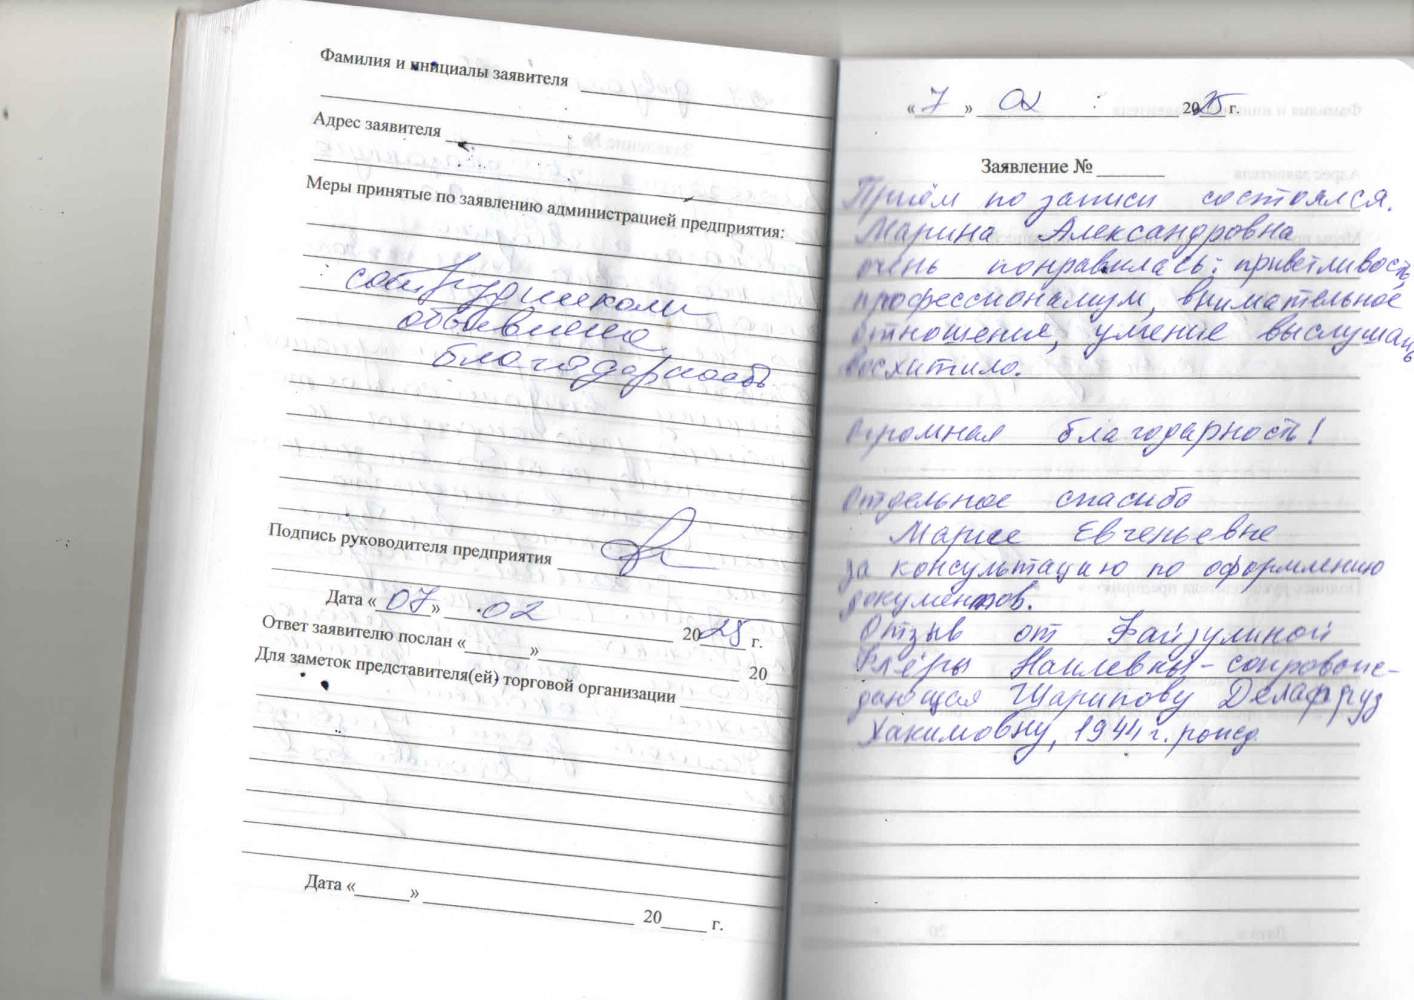 Фамилия и инициалы заявителя
Адрес заявителя
Меры принятые по заявлению администрацией предприятия:
сотрудникам
объявлена
благодарность
Подпись руководителя предприятия
Дата « 07 » 02 2025 г.
Ответ заявителю послан « » 20
Для заметок представителя(ей) торговой организации
Дата « » 20 г.
« 7 » 02 2025 г.
Заявление №
Приём по записи состоялся.
Марина Александровна
очень понравилась: приветливость,
профессионализм, внимательное
отношение, умение выслушать
восхитило.
Огромная благодарность!
Отдельное спасибо
Марие Евгеньевне
за консультацию по оформлению
документов.
Отзыв от Файзулиной
Флёры Наилевны - сопровож-
дающая Шарипову Делафруз
Хакимовну, 1944 г. рожд